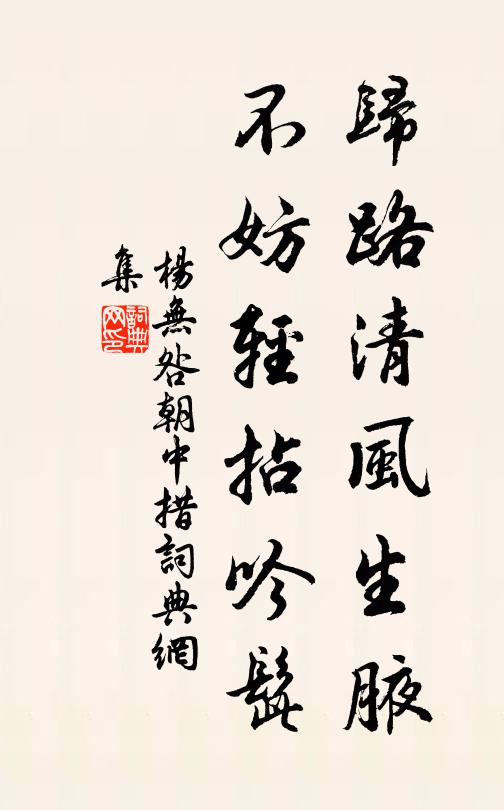 歸路清風生腋
不妨輕拈吟髭
楊無咎朝中措詞典網
集
詞典
网印